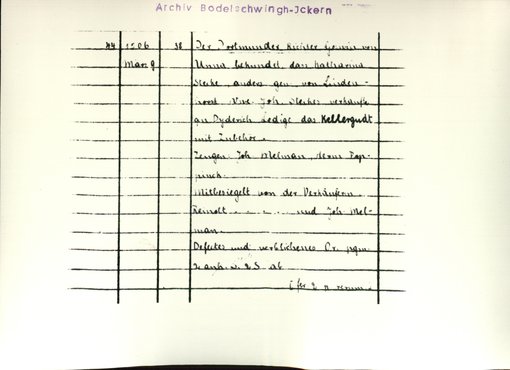 Archiv Bodelschwingh-Ickern
44 1506 38 Der Dortmunder Richter von
März 9 Unna bekundet, das Katharina
Stecke anders gen. von Linden-
horst Wwe. Joh. Steckes verkaufte
an Dyderich das Kellergudt
mit Zubehör.
Zeugen Joh. Melman, Herm. Pap-
pinck.
Mitbesiegelt von der Verkäuferin
und Joh. Mel-
man.
Defektes und verblichenes Or. pgm
2 anh. 2 S. ab.